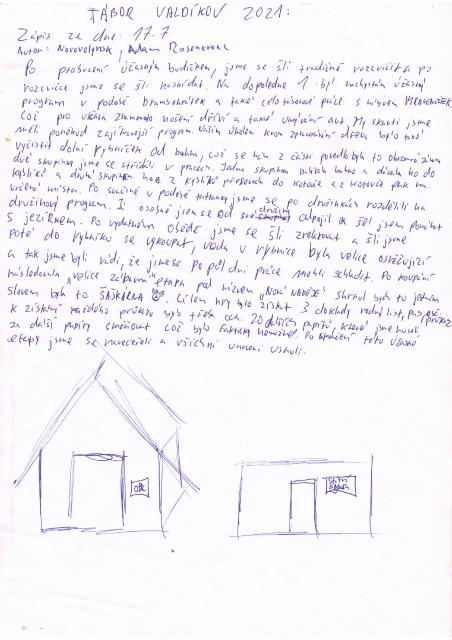 TÁBOR VALDÍKOV 2021:
Zápis za dne: 17.7.
Autor: Novovolynsk, Adam Rosenkranc
Po probuzení úžasným budíčkem, jsme se šli tradičně rozcvičit a po
rozcvičce jsme se šli nasnídat. Na dopoledne byl nachystán úžasný
program v podobě bramborniček a také celotáborové práce s názvem
Což pro vlčata znamenalo nošení dříví a také umývání aut. My skauti jsme
měli poněkud zajímavější program. Naším úkolem krom zpracování dřeva bylo také
vyčistit dolní rybníček od bahna, což se nám z části povedlo byla to ohromná dřina
dvě skupinky jsme se střídali v pracech. Jedna skupinka nabírala bahno a dávala ho do
kyblíků a druhá skupinka ho z kyblíků přesouvala do kotouče a z kotouče pak na
určené místo. Po svačině v podobě tatranky jsme se po družinkách rozdělili na
družinový program. I osobně jsem se od své družiny odpojil a šel jsem pomáhat
s jezírkem. Po vydatném obědě jsme se šli zrelaxovat a šli jsme
poté do rybníku se vykoupat, voda v rybníce byla velice osvěžující
a tak jsme byli rádi, že jsme se po půl dni práce mohli zchladit. Po koupání
následovala "velice zábavná" etapa pod názvem "Nová naděje" shrnul bych to jedním
slovem bych to ŠAŠKÁRNA. Cílem hry bylo získat 3 doklady rodný list, pas, průkaz
k získání každého průkazu bylo třeba cca. 20 dalších papírů, které jsme museli
za další papíry směňovat což bylo fakticky nemožné. Po skončení této úžasné
etapy jsme se navečeřeli a všichni unaveni usnuli.
OBC